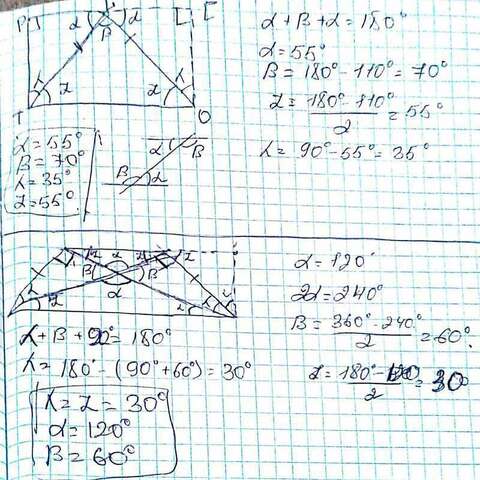 P α α E
β
λ α α λ
T O
α + β + α = 180°
α = 55°
β = 180° - 110° = 70°
α = 180° - 110° / 2 = 55°
λ = 90° - 55° = 35°
α = 55°
β = 70°
λ = 35°
α = 55°
α β
β α
α
β β
α
α = 120°
2α = 240°
β = 360° - 240° / 2 = 60°.
λ + β + 90° = 180°
λ = 180° - (90° + 60°) = 30°
= 30°
λ = L = 30°
α = 120°
β = 60°